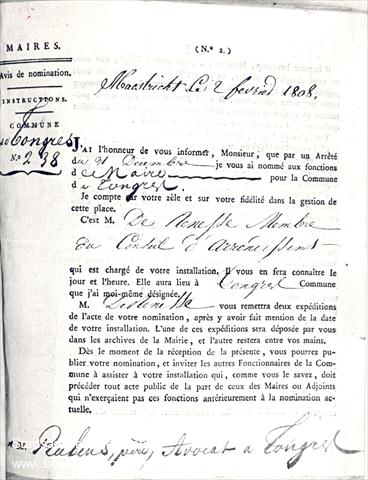 MAIRES.
(N.º 2.)
Avis de nomination.
INSTRUCTIONS.
COMMUNE
de Tongres
N.º 238
Maastricht Le 2 fevrier 1808.
J'AI l'honneur de vous informer, Monsieur, que par un Arrêté
du 21 Decembre je vous ai nommé aux fonctions
de Maire pour la Commune
de Tongres.
Je compte sur votre zèle et sur votre fidélité dans la gestion de
cette place.
C'est M. De Renesse Membre
du Conseil d'Arrondissement
qui est chargé de votre installation. Il vous en fera connaître le
jour et l'heure. Elle aura lieu à Tongres Commune
que j'ai moi-même désignée.
M. De Renesse vous remettra deux expéditions
de l'acte de votre nomination, après y avoir fait mention de la date
de votre installation. L'une de ces expéditions sera déposée par vous
dans les archives de la Mairie, et l'autre restera entre vos mains.
Dès le moment de la réception de la présente, vous pourrez pu-
blier votre nomination, et inviter les autres Fonctionnaires de la Com-
mune à assister à votre installation qui, comme vous le savez, doit
précéder tout acte public de la part de ceux des Maires ou Adjoints
qui n'exerçaient pas ces fonctions antérieurement à la nomination ac-
tuelle.
A M. Rubens, père, Avocat a Tongres